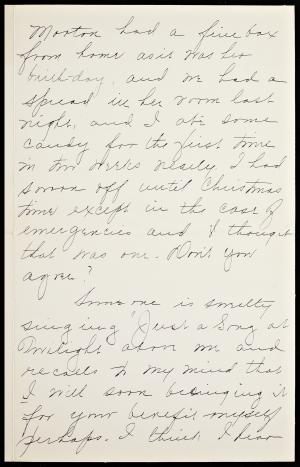 Morton had a fine box
from home as it was her
birth-day, and we had a
spread in her room last
night, and I ate some
candy for the first time
in two weeks nearly. I had
sworn off until Christmas
time except in the case of
emergencies and I thought
that was one. Don't you
agree?
Some one is
singing "Just a Song at
Twilight above me and
recalls to my mind that
I will soon be singing it
for your benefit myself
perhaps. I think I hear